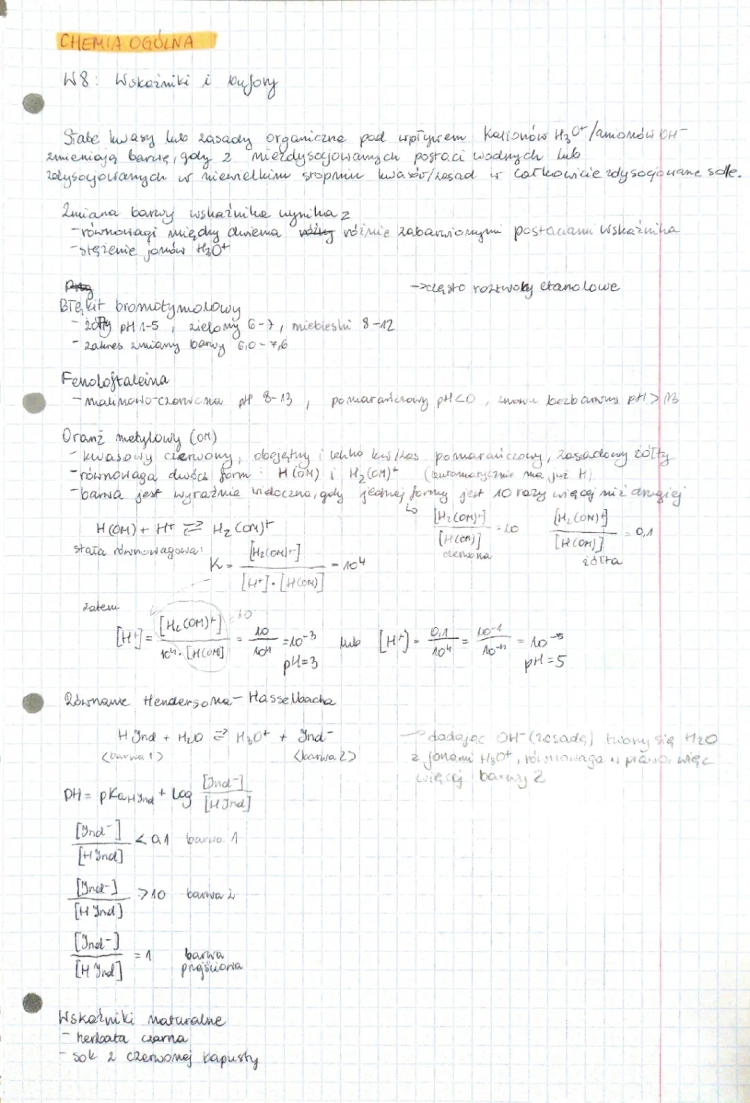 CHEMIA OGÓLNA
W8: Wskaźniki i bufory
Słabe kwasy lub zasady organiczne pod wpływem kationów H₃O⁺/anionów OH⁻
zmieniają barwę, gdy z niezdysocjowanych postaci wodnych lub
zdysocjowanych w niewielkim stopniu kwasów/zasad w całkowicie zdysocjowane sole.
Zmiana barwy wskaźnika wynika z
- równowagi między dwiema różnie zabarwionymi postaciami wskaźnika
- stężenie jonów H₃O⁺
→ często roztwory etanolowe
Błękit bromotymolowy
- żółty pH 1-5, zielony 6-7, niebieski 8-12
- zakres zmiany barwy 6,0-7,6
Fenoloftaleina
- malinowo-czerwona pH 8-13, pomarańczowy pH<0, znowu bezbarwna pH>13
Oranż metylowy (OM)
- kwasowy czerwony, obojętny i lekko kw/zas pomarańczowy, zasadowy żółty
- równowaga dwóch form: H(OM) i H₂(OM)⁺ (automatycznie ma już H)
- barwa jest wyraźnie widoczna, gdy jednej formy jest 10 razy więcej niż drugiej
↳ [H₂(OM)⁺]/[H(OM)] = 10 czerwona [H₂(OM)⁺]/[H(OM)] = 0,1 żółta
H(OM) + H⁺ ⇄ H₂(OM)⁺
stała równowagowa: K = [H₂(OM)⁺]/[H⁺]·[H(OM)] = 10⁴
zatem
[H⁺] = [H₂(OM)⁺]/10⁴·[H(OM)] = 10/10⁴ = 10⁻³ pH=3 lub [H⁺] = 0,1/10⁴ = 10⁻¹/10⁴ = 10⁻⁵ pH=5
Równanie Hendersona-Hasselbacha
H Ind + H₂O ⇄ H₃O⁺ + Ind⁻
(barwa 1) (barwa 2)
→ dodając OH⁻ (zasadę) tworzy się H₂O
z jonami H₃O⁺, równowaga w prawo, więc
więcej barwy 2
pH = pKa HInd + log [Ind⁻]/[H Ind]
[Ind⁻]/[H Ind] < 0,1 barwa 1
[Ind⁻]/[H Ind] > 10 barwa 2
[Ind⁻]/[H Ind] = 1 barwa
przejściowa
Wskaźniki naturalne
- herbata czarna
- sok z czerwonej kapusty